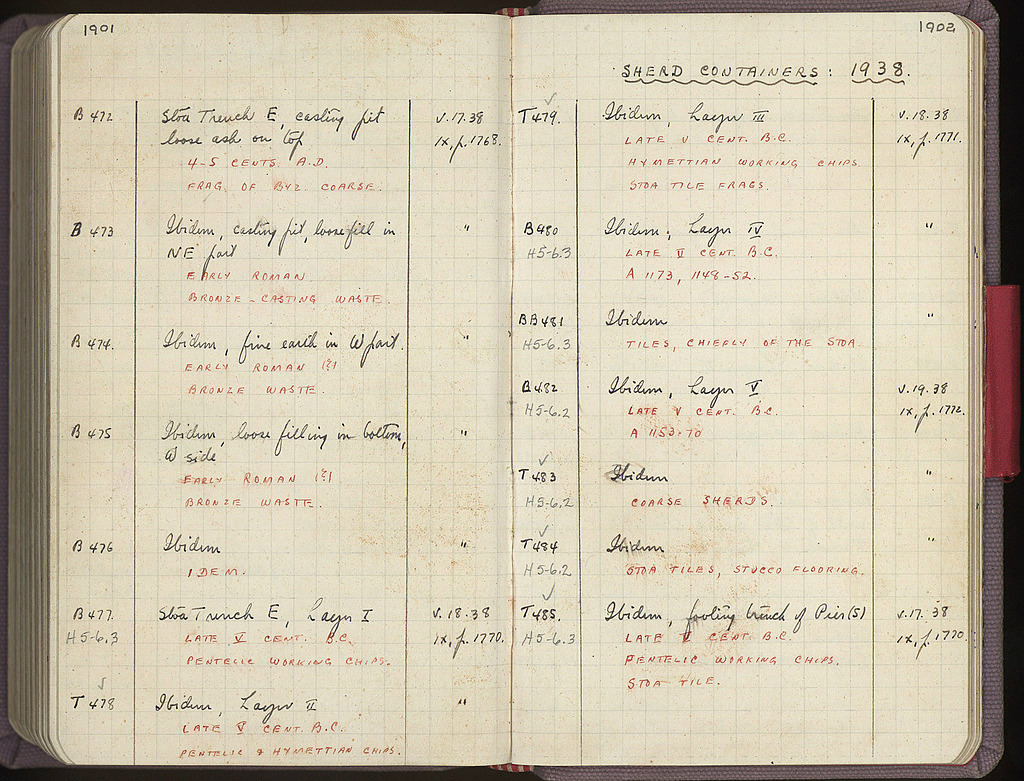 1901
B 472 Stoa Trench E, casting pit V.17.38
loose ash on top IX, p. 1768.
4-5 CENTS. A.D.
FRAG. OF BYZ. COARSE.
B 473 Ibidem, casting pit, loose fill in "
NE part
EARLY ROMAN
BRONZE-CASTING WASTE.
B 474. Ibidem, fine earth in W part. "
EARLY ROMAN (?)
BRONZE WASTE.
B 475 Ibidem, loose filling in bottom, "
W side
EARLY ROMAN (?)
BRONZE WASTE.
B 476 Ibidem "
IDEM.
B 477. Stoa Trench E, Layer I V.18.38
H5-6.3 LATE V CENT. B.C. IX, p. 1770.
PENTELIC WORKING CHIPS.
✓
T 478 Ibidem, Layer II "
LATE V CENT. B.C.
PENTELIC & HYMETTIAN CHIPS.
1902
SHERD CONTAINERS: 1938.
✓
T 479. Ibidem, Layer III V.18.38
LATE V CENT. B.C. IX, p. 1771.
HYMETTIAN WORKING CHIPS.
STOA TILE FRAGS.
B 480 Ibidem, Layer IV "
H5-6.3 LATE V CENT. B.C.
A 1173, 1148-52.
BB 481 Ibidem "
H5-6.3 TILES, CHIEFLY OF THE STOA.
B 482 Ibidem, Layer V V.19.38
H5-6.2 LATE V CENT. B.C. IX, p. 1772.
A 1153-70
✓
T 483 Ibidem "
H5-6.2 COARSE SHERDS.
✓
T 484 Ibidem "
H5-6.2 STOA TILES, STUCCO FLOORING.
✓
T 485. Ibidem, footing trench of Pier (5) V.17.38
H5-6.3 LATE V CENT B.C. IX, p. 1770.
PENTELIC WORKING CHIPS.
STOA TILE.